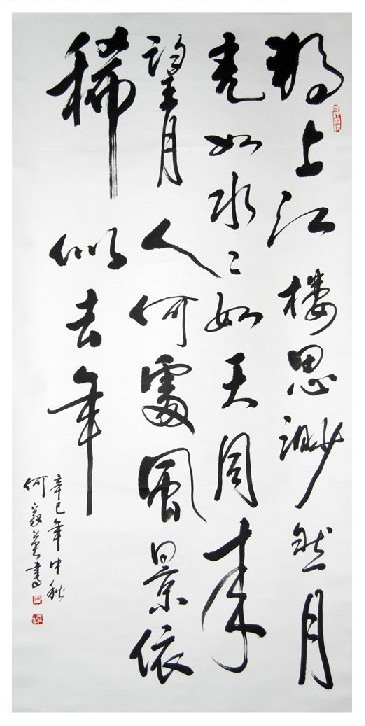 獨上江樓思渺然月
光如水々如天同來
望月人何處風景依
稀似去年
辛巳年中秋
何 書